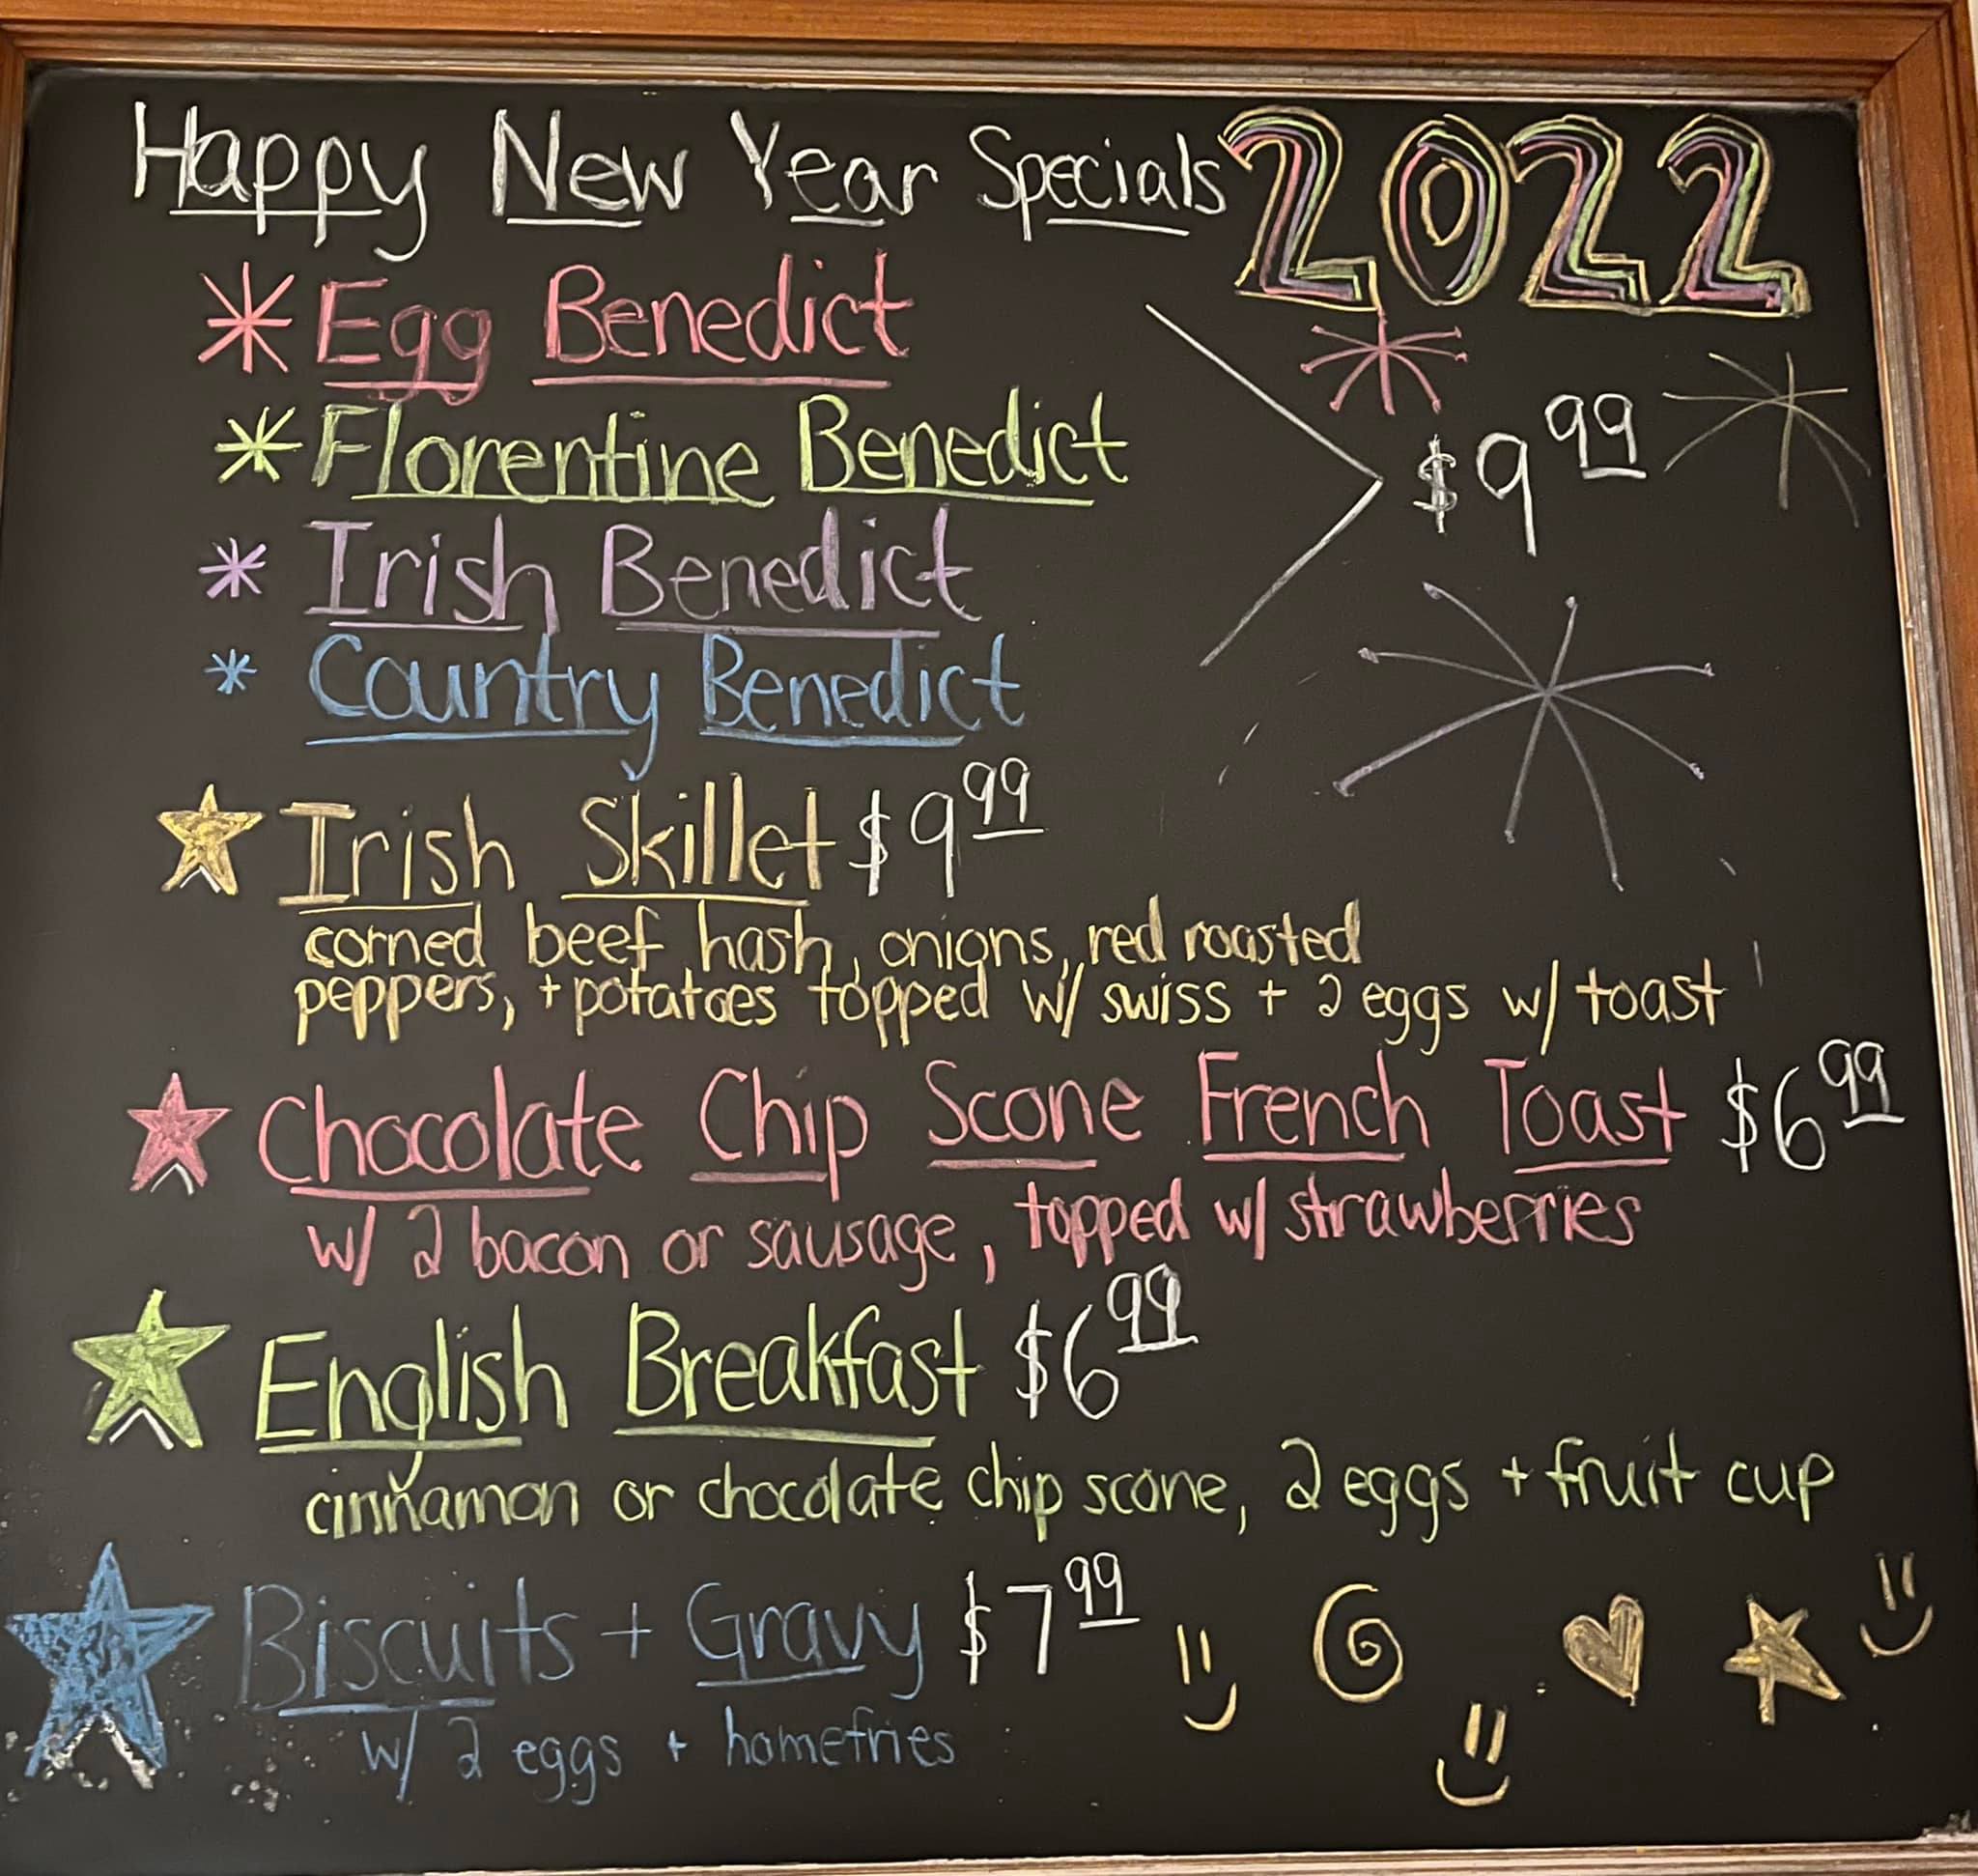 Happy New Year Specials 2022
Egg Benedict
Florentine Benedict
$9 99
Irish Benedict
Country Benedict
Irish Skillet $9 99
corned beef hash, onions, red roasted
peppers, + potatoes topped w/ swiss + 2 eggs w/ toast
Chocolate Chip Scone French Toast $6 99
w/ 2 bacon or sausage, topped w/ strawberries
English Breakfast $6 99
cinnamon or chocolate chip scone, 2 eggs + fruit cup
Biscuits + Gravy $7 99
w/ 2 eggs + homefries